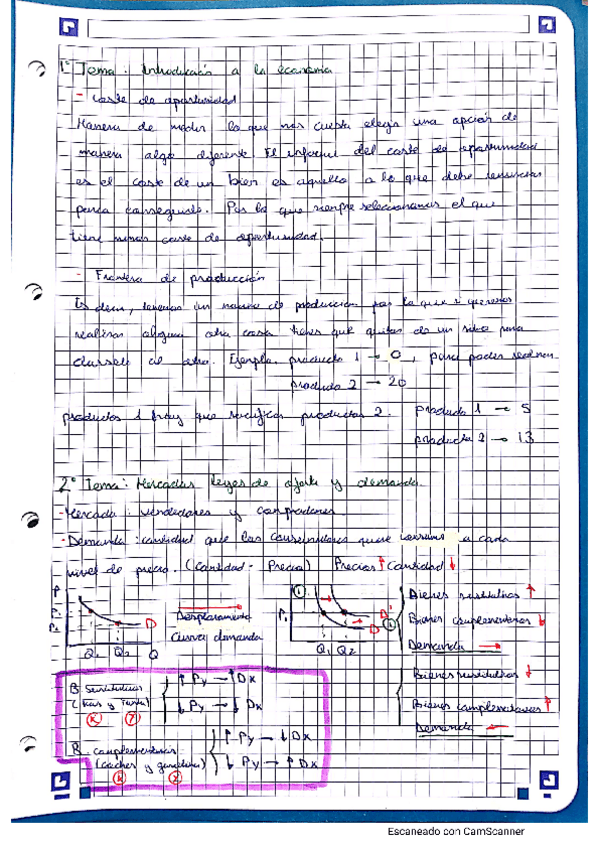 1º Tema: Introducción a la economía
- Coste de oportunidad
Manera de medir lo que nos cuesta elegir una opción de
manera algo diferente. El informal del coste de oportunidad
es el coste de un bien es aquello a lo que debe renunciar
para conseguirlo. Por lo que siempre seleccionamos el que
tiene menos coste de oportunidad.
- Frontera de producción
Es decir, tenemos un de producción por la que si queremos
realizar alguna otra cosa tienes que quitar de un sitio para
dárselo al otro. Ejemplo, producto 1 → 0, para poder
producto 2 → 20
productos 1 hay que sacrificar productos 2. producto 1 → 5
producto 2 → 13
2º Tema: Mercados leyes de oferta y demanda.
- Mercado: vendedores y compradores
- Demanda: cantidad que los consumidores quiere a cada
nivel de precio. (Cantidad - Precio) Precios ↑ Cantidad ↓
P
D
Q1 Q2 Q
Desplazamiento
Curva demanda
P1
D D'
Q1 Q2
Bienes sustitutivos ↑
Bienes complementarios ↓
Demanda →
Bienes sustitutivos ↓
Bienes complementarios ↑
Demanda ←
B. sustitutivos
(Kas y Fanta)
X Y
↑ Py → ↑ Dx
↓ Py → ↓ Dx
B. complementarios
(coches y gasolina)
↑ Py → ↓ Dx
↓ Py → ↑ Dx
Escaneado con CamScanner